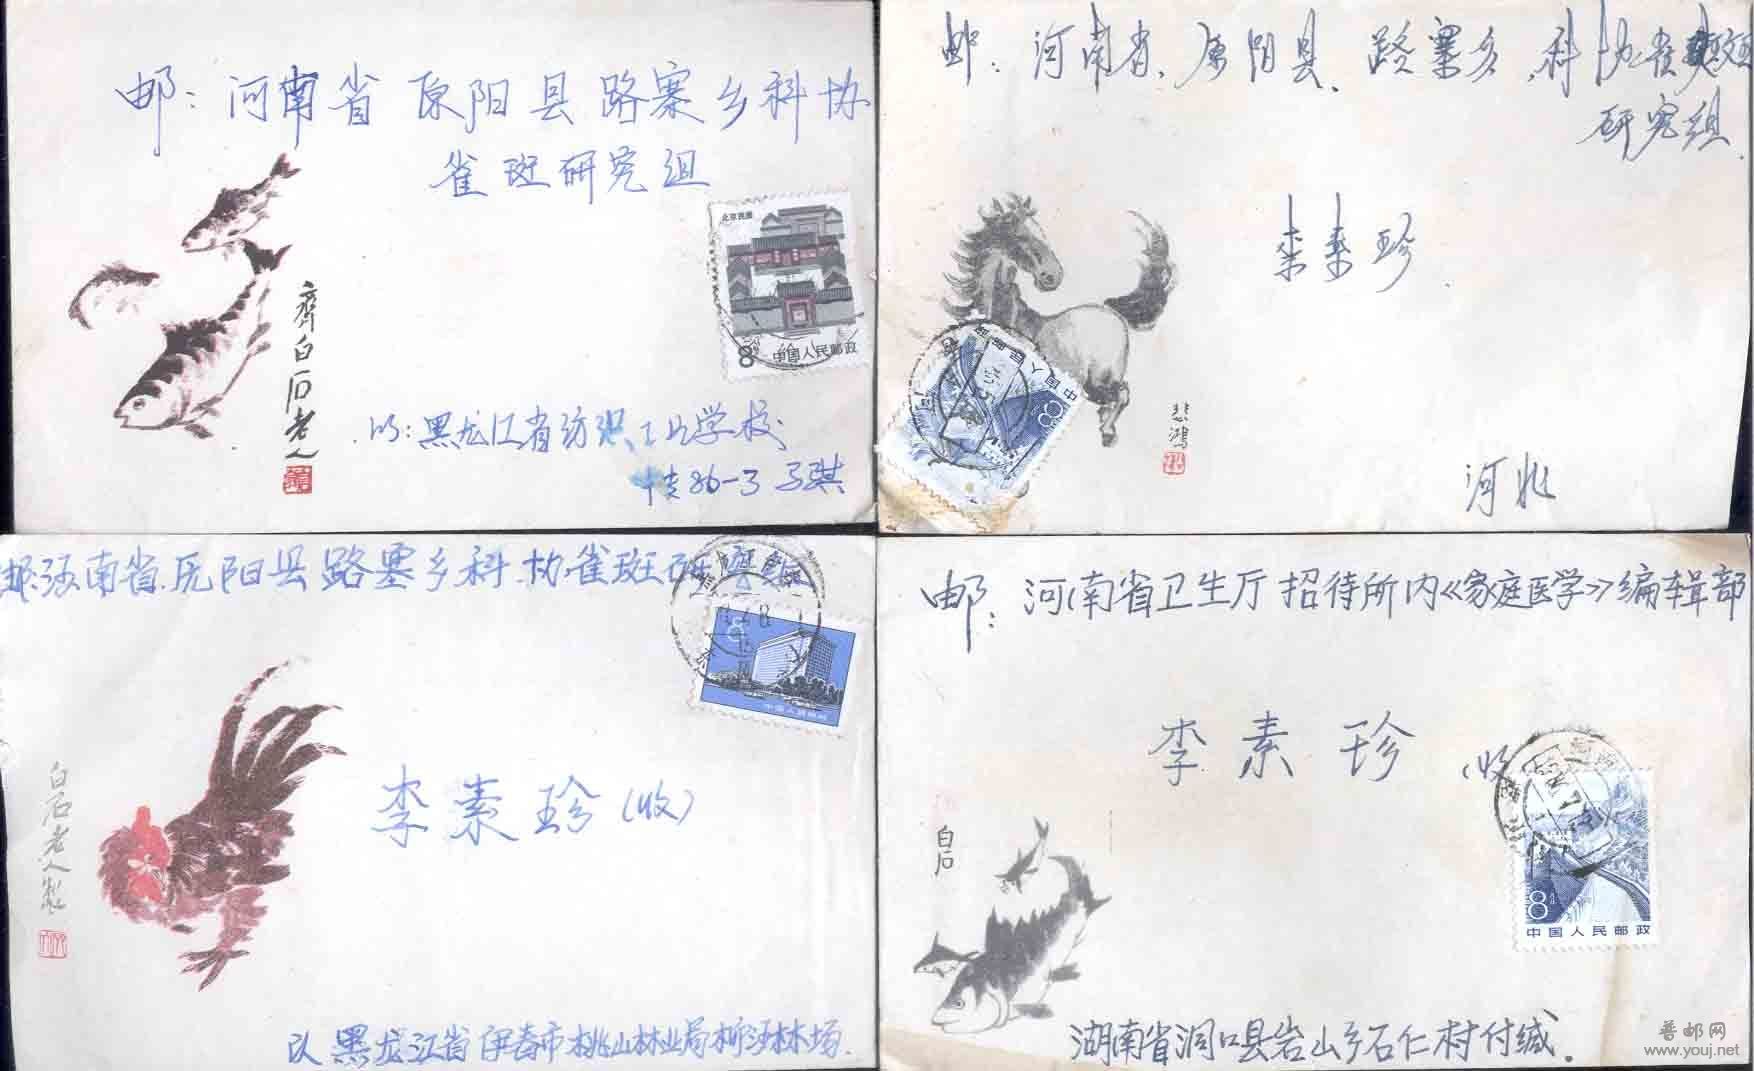 邮：河南省原阳县路寨乡科协
雀斑研究组
北京民居
8
中国人民邮政
齊白石老人
以：黑龙江省纺织工业学校
86-3 马骐
邮：河南省原阳县路寨乡科协雀斑
研究组
李素珍
中国人民邮政
8
悲鴻
河北
邮：河南省原阳县路寨乡科协雀斑研究组
8
中国人民邮政
李素珍（收）
白石老人製
以黑龙江省伊春市桃山林业局柳河林场
邮：河南省卫生厅招待所内《家庭医学》编辑部
李素珍（收）
白石
8
中国人民邮政
湖南省洞口县岩山乡石仁村付缄.
普邮网
www.youj.net